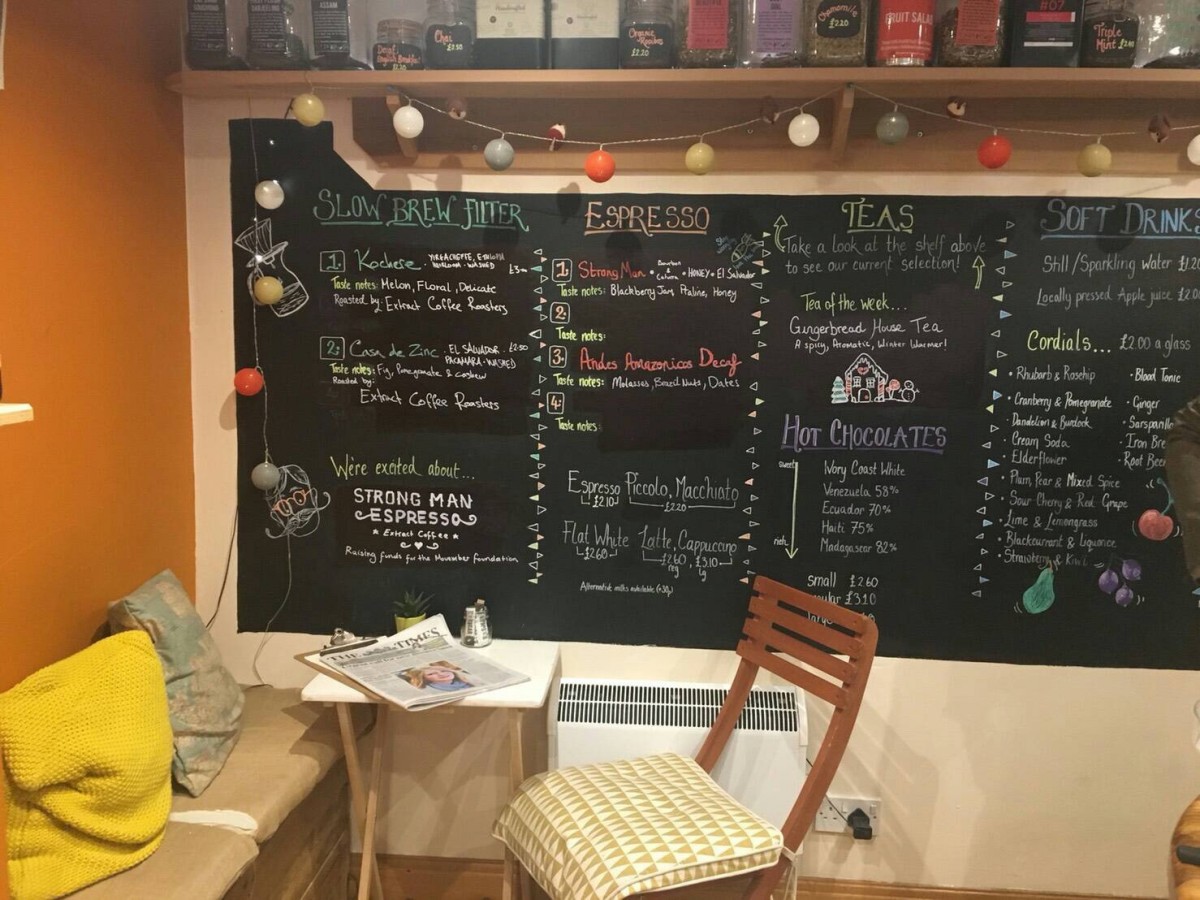 Decaf English Breakfast £2.20
Chai £2.50
Organic Rooibos £2.20
Chamomile £2.20
FRUIT SALAD
#07
Triple Mint £2.40
SLOW BREW FILTER
1. Kochere · YIRGACHEFFE, ETHIOPIA
HEIRLOOM · WASHED
Taste notes: Melon, Floral, Delicate
Roasted by: Extract Coffee Roasters
2. Casa de Zinc · EL SALVADOR · £2.50
PACAMARA · WASHED
Taste notes: Fig, Pomegranate & Cashew
Roasted by:
Extract Coffee Roasters
We're excited about...
STRONG MAN
ESPRESSO
* Extract Coffee *
Raising funds for the Movember foundation
ESPRESSO
1. Strong Man · Bourbon & Caturra · HONEY · El Salvador
Taste notes: Blackberry Jam, Praline, Honey
2.
Taste notes:
3. Andes Amazonicos Decaf
Taste notes: Molasses, Brazil Nuts, Dates
4.
Taste notes:
Espresso Piccolo, Macchiato
£2.10 £2.20
Flat White Latte, Cappuccino
£2.60 £2.60 reg £3.10 lg
Alternative milks available (+30p)
TEAS
Take a look at the shelf above
to see our current selection!
Tea of the week...
Gingerbread House Tea
A spicy, Aromatic, Winter Warmer!
HOT CHOCOLATES
sweet
Ivory Coast White
Venezuela 58%
Ecuador 70%
Haiti 75%
rich
Madagascar 82%
small £2.60
£3.10
large
SOFT DRINKS
Still/Sparkling Water £1.20
Locally pressed Apple juice
Cordials... £2.00 a glass
· Rhubarb & Rosehip
· Blood Tonic
· Cranberry & Pomegranate
· Ginger
· Dandelion & Burdock
· Sarsparilla
· Cream Soda
· Iron Bre
· Elderflower
· Root Beer
· Plum Pear & Mixed Spice
· Sour Cherry & Red Grape
· Lime & Lemongrass
· Blackcurrant & Liquorice
· Strawberry & Kiwi
THE TIMES